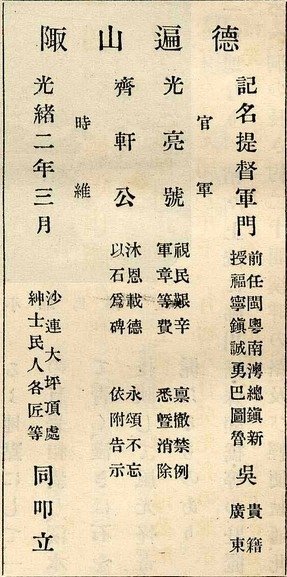 德遍山陬
記名提督軍門
前任閩粵南澳總鎮新
授福寧鎮誠勇巴圖魯
吳
貴籍
廣東
官軍
光亮號
視民艱辛 稟撤禁例
軍章等費 悉暨消除
齊軒公
沐恩載德 永頌不忘
以石爲碑 依附告示
時維
光緒二年三月
沙連大坪頂處
紳士民人各匠等
同叩立